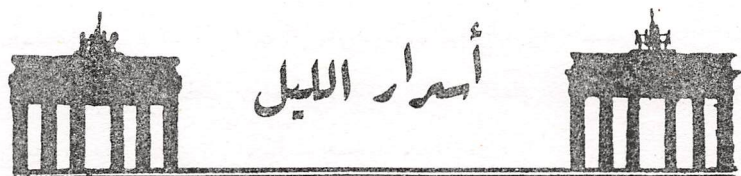 أسرار الليل